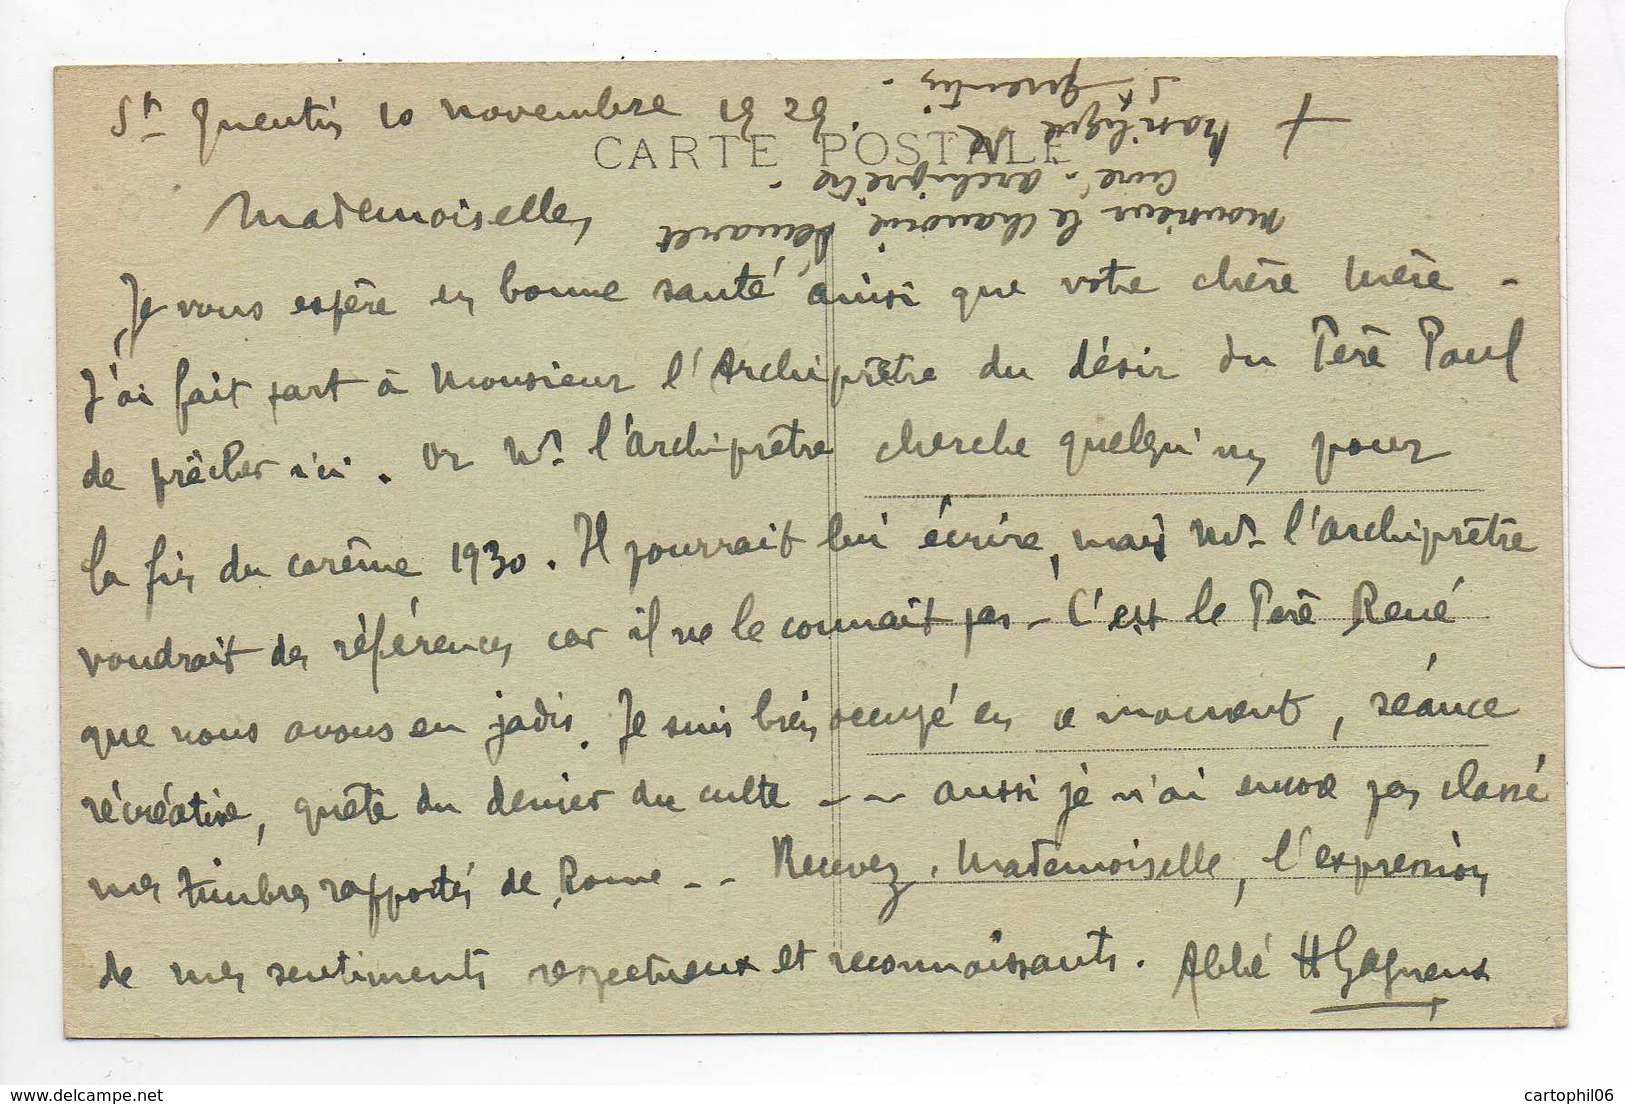 St Quentin 10 novembre 1929.
CARTE POSTALE
Mademoiselle,
Je vous espère en bonne santé, ainsi que votre chère mère -
J'ai fait part à Monsieur l'Archiprêtre du désir du Père Paul
de prêcher ici. Or Mr l'archiprêtre cherche quelqu'un pour
la fin du carême 1930. Il pourrait lui écrire, mais Mr l'archiprêtre
voudrait des références car il ne le connait pas - C'est le Père René
que nous avons eu jadis. Je suis bien occupé en ce moment, séance
récréative, quête du denier du culte - - aussi je n'ai encore pas classé
mes timbres rapportés de Rome - - Recevez, Mademoiselle, l'expression
de mes sentiments respectueux et reconnaissants. Abbé H Gagneux
Monsieur le chanoine Demaret
curé-archiprêtre -
+ Basilique de
St Quentin -
cartophil06